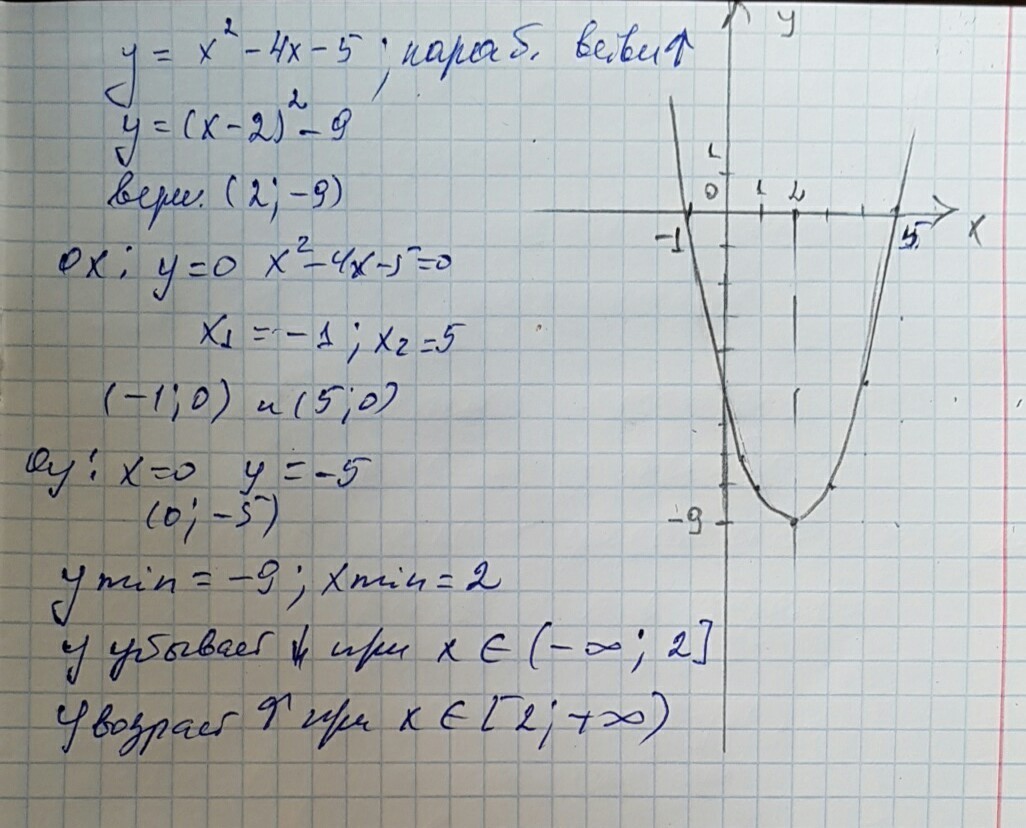 y = x² - 4x - 5 ; параб. ветви↑
y = (x - 2)² - 9
верш. (2; -9)
Ox: y=0 x² - 4x - 5 = 0
x₁ = -1 ; x₂ = 5
(-1; 0) и (5; 0)
Oy: x=0 y = -5
(0; -5)
y min = -9 ; x min = 2
y убывает ↓ при x ∈ (-∞; 2]
y возраст ↑ при x ∈ [2; +∞)
y
1
0 1 2
-1 5 x
-9